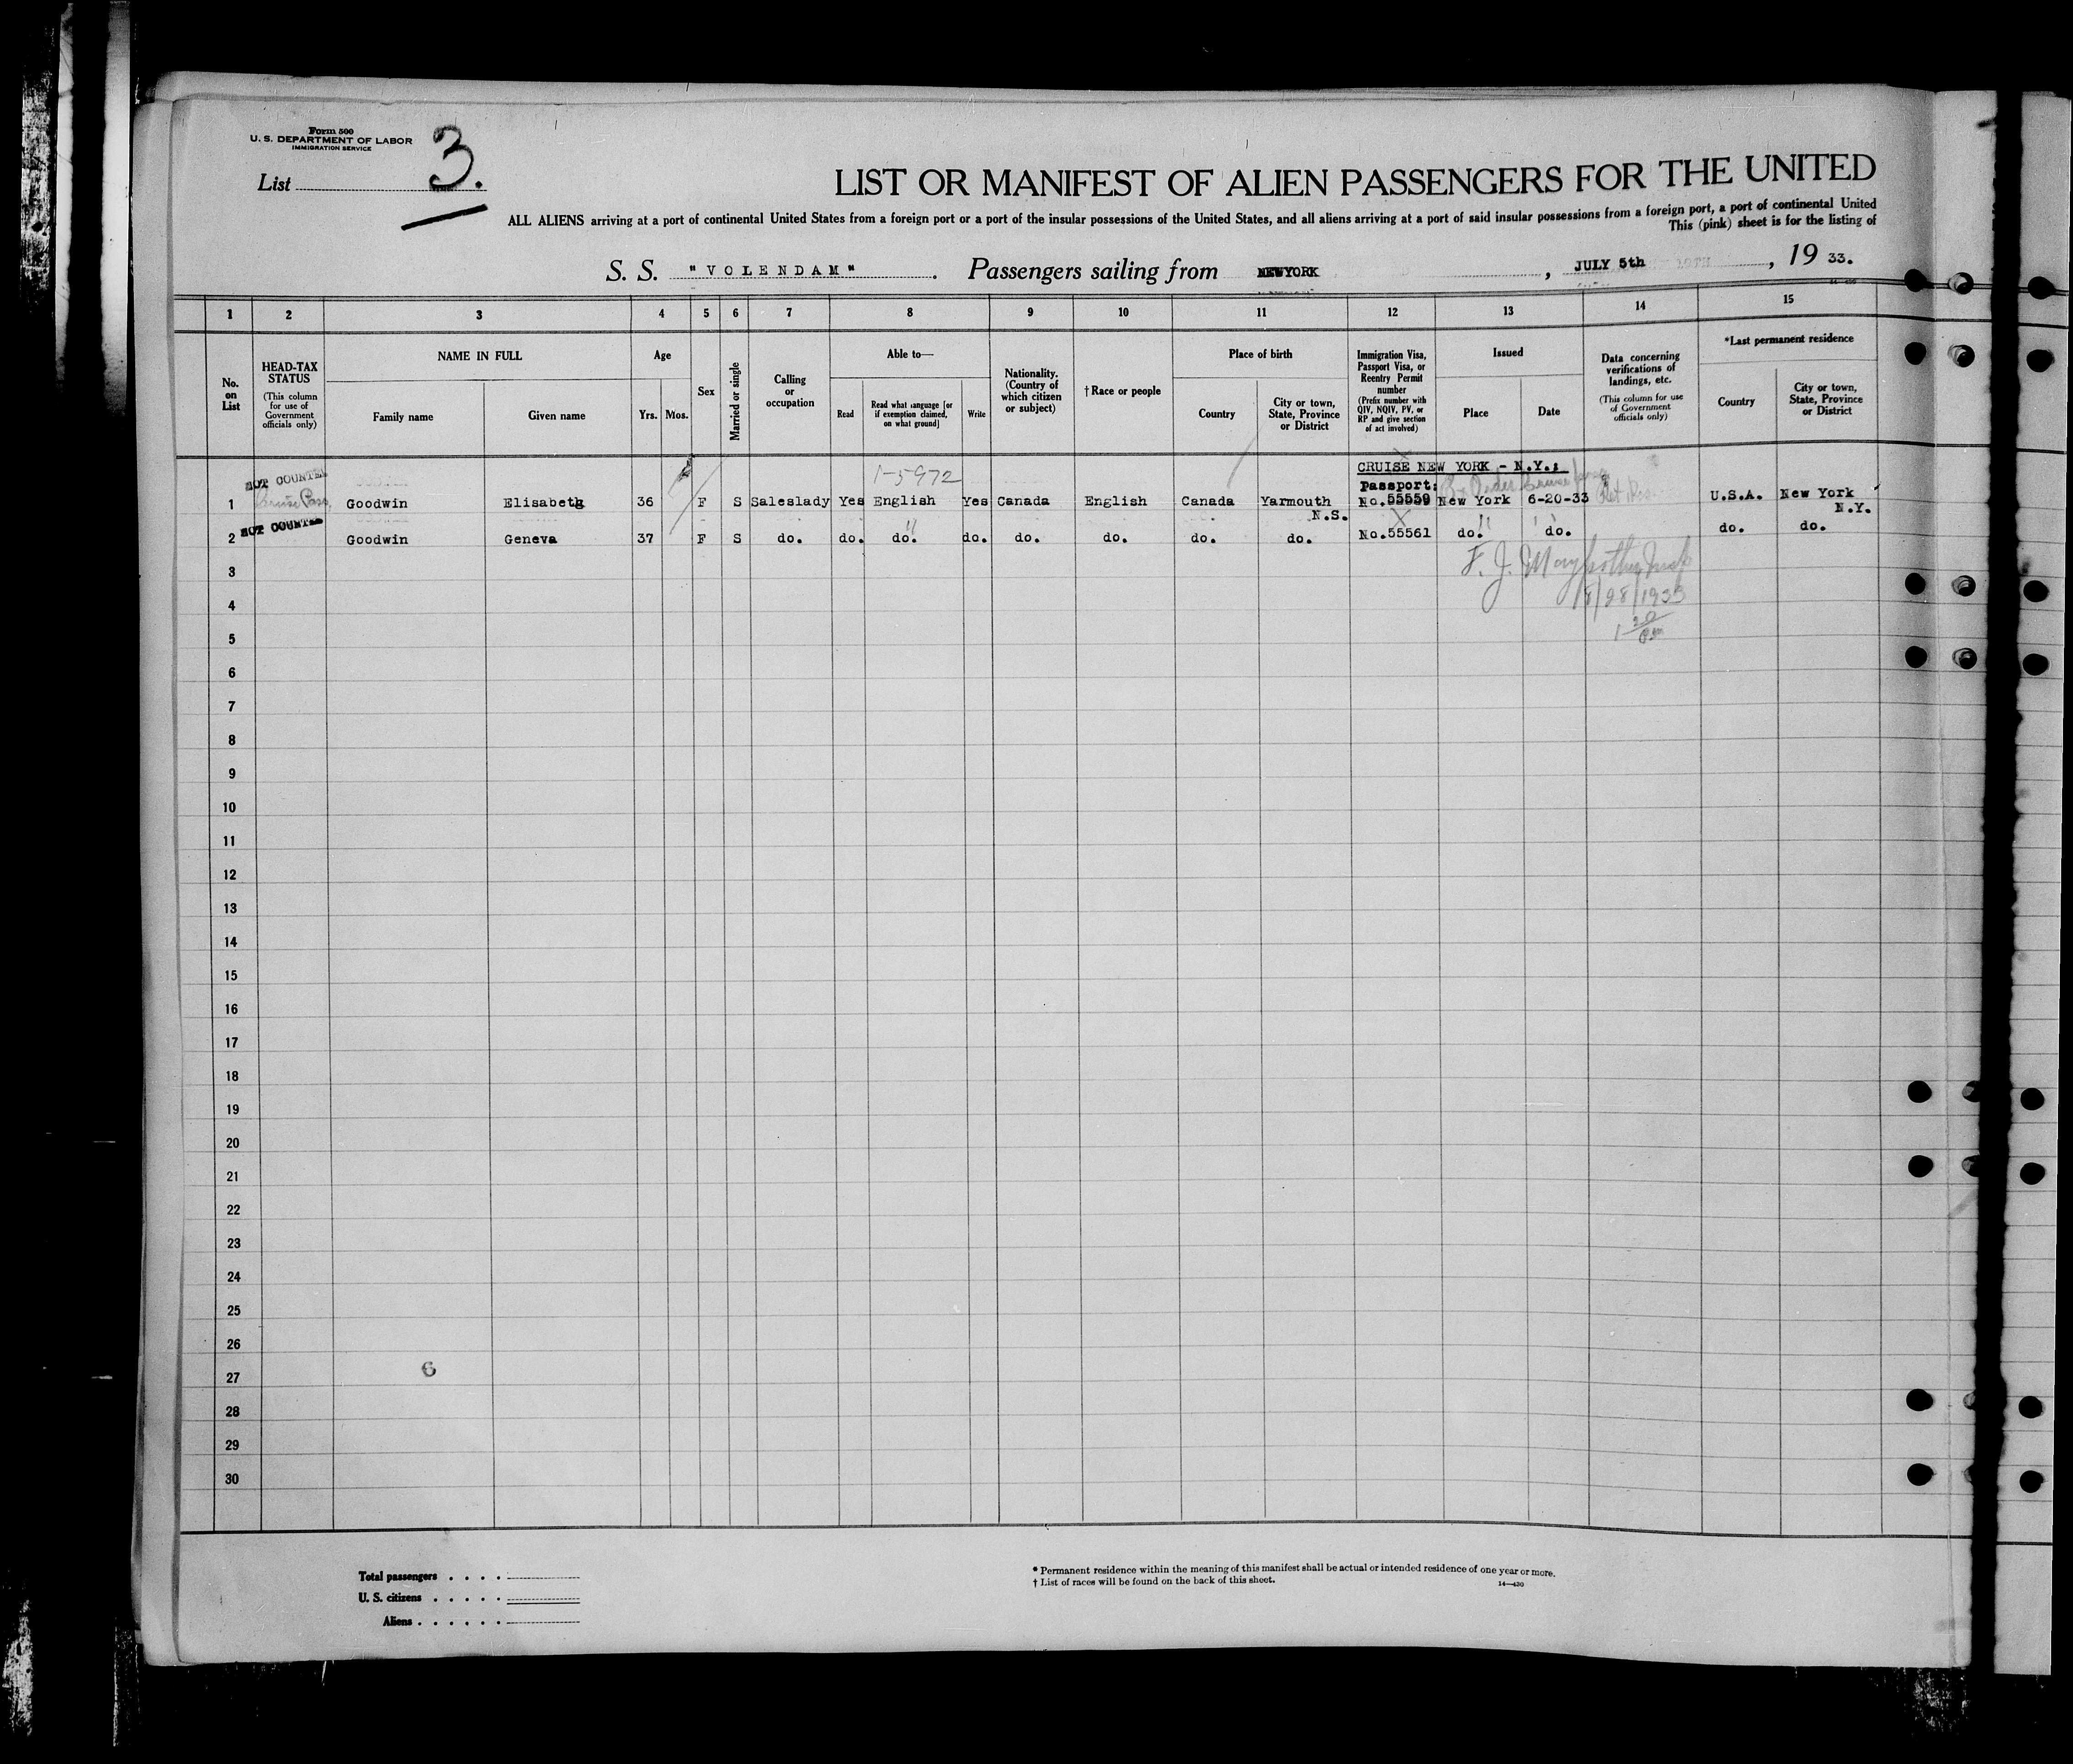 Form 500
U. S. DEPARTMENT OF LABOR
IMMIGRATION SERVICE
List 3.
LIST OR MANIFEST OF ALIEN PASSENGERS FOR THE UNITED
ALL ALIENS arriving at a port of continental United States from a foreign port or a port of the insular possessions of the United States, and all aliens arriving at a port of said insular possessions from a foreign port, a port of continental United
This (pink) sheet is for the listing of
S. S. "VOLENDAM". Passengers sailing from NEWYORK, JULY 5th, 19 33.
1 2 3 4 5 6 7 8 9 10 11 12 13 14 15
No. on List
HEAD-TAX STATUS (This column for use of Government officials only)
NAME IN FULL
Family name
Given name
Age
Yrs. Mos.
Sex
Married or single
Calling or occupation
Able to—
Read
Read what language [or if exemption claimed, on what ground]
Write
Nationality. (Country of which citizen or subject)
† Race or people
Place of birth
Country
City or town, State, Province or District
Immigration Visa, Passport Visa, or Reentry Permit number (Prefix number with QIV, NQIV, PV, or RP and give section of act involved)
Issued
Place
Date
Data concerning verifications of landings, etc. (This column for use of Government officials only)
*Last permanent residence
Country
City or town, State, Province or District
1-5972
CRUISE NEW YORK - N.Y.:
NOT COUNTED
Passport:
1 Goodwin Elisabeth 36 F S Saleslady Yes English Yes Canada English Canada Yarmouth N.S. No.55559 New York 6-20-33 U.S.A. New York N.Y.
NOT COUNTED
2 Goodwin Geneva 37 F S do. do. do. do. do. do. do. do. No.55561 do. do. do. do.
3
8/28/1933
4
5
6
7
8
9
10
11
12
13
14
15
16
17
18
19
20
21
22
23
24
25
26
6
27
28
29
30
Total passengers . . . .
U. S. citizens . . . . .
Aliens . . . . . .
* Permanent residence within the meaning of this manifest shall be actual or intended residence of one year or more.
† List of races will be found on the back of this sheet.
14—430